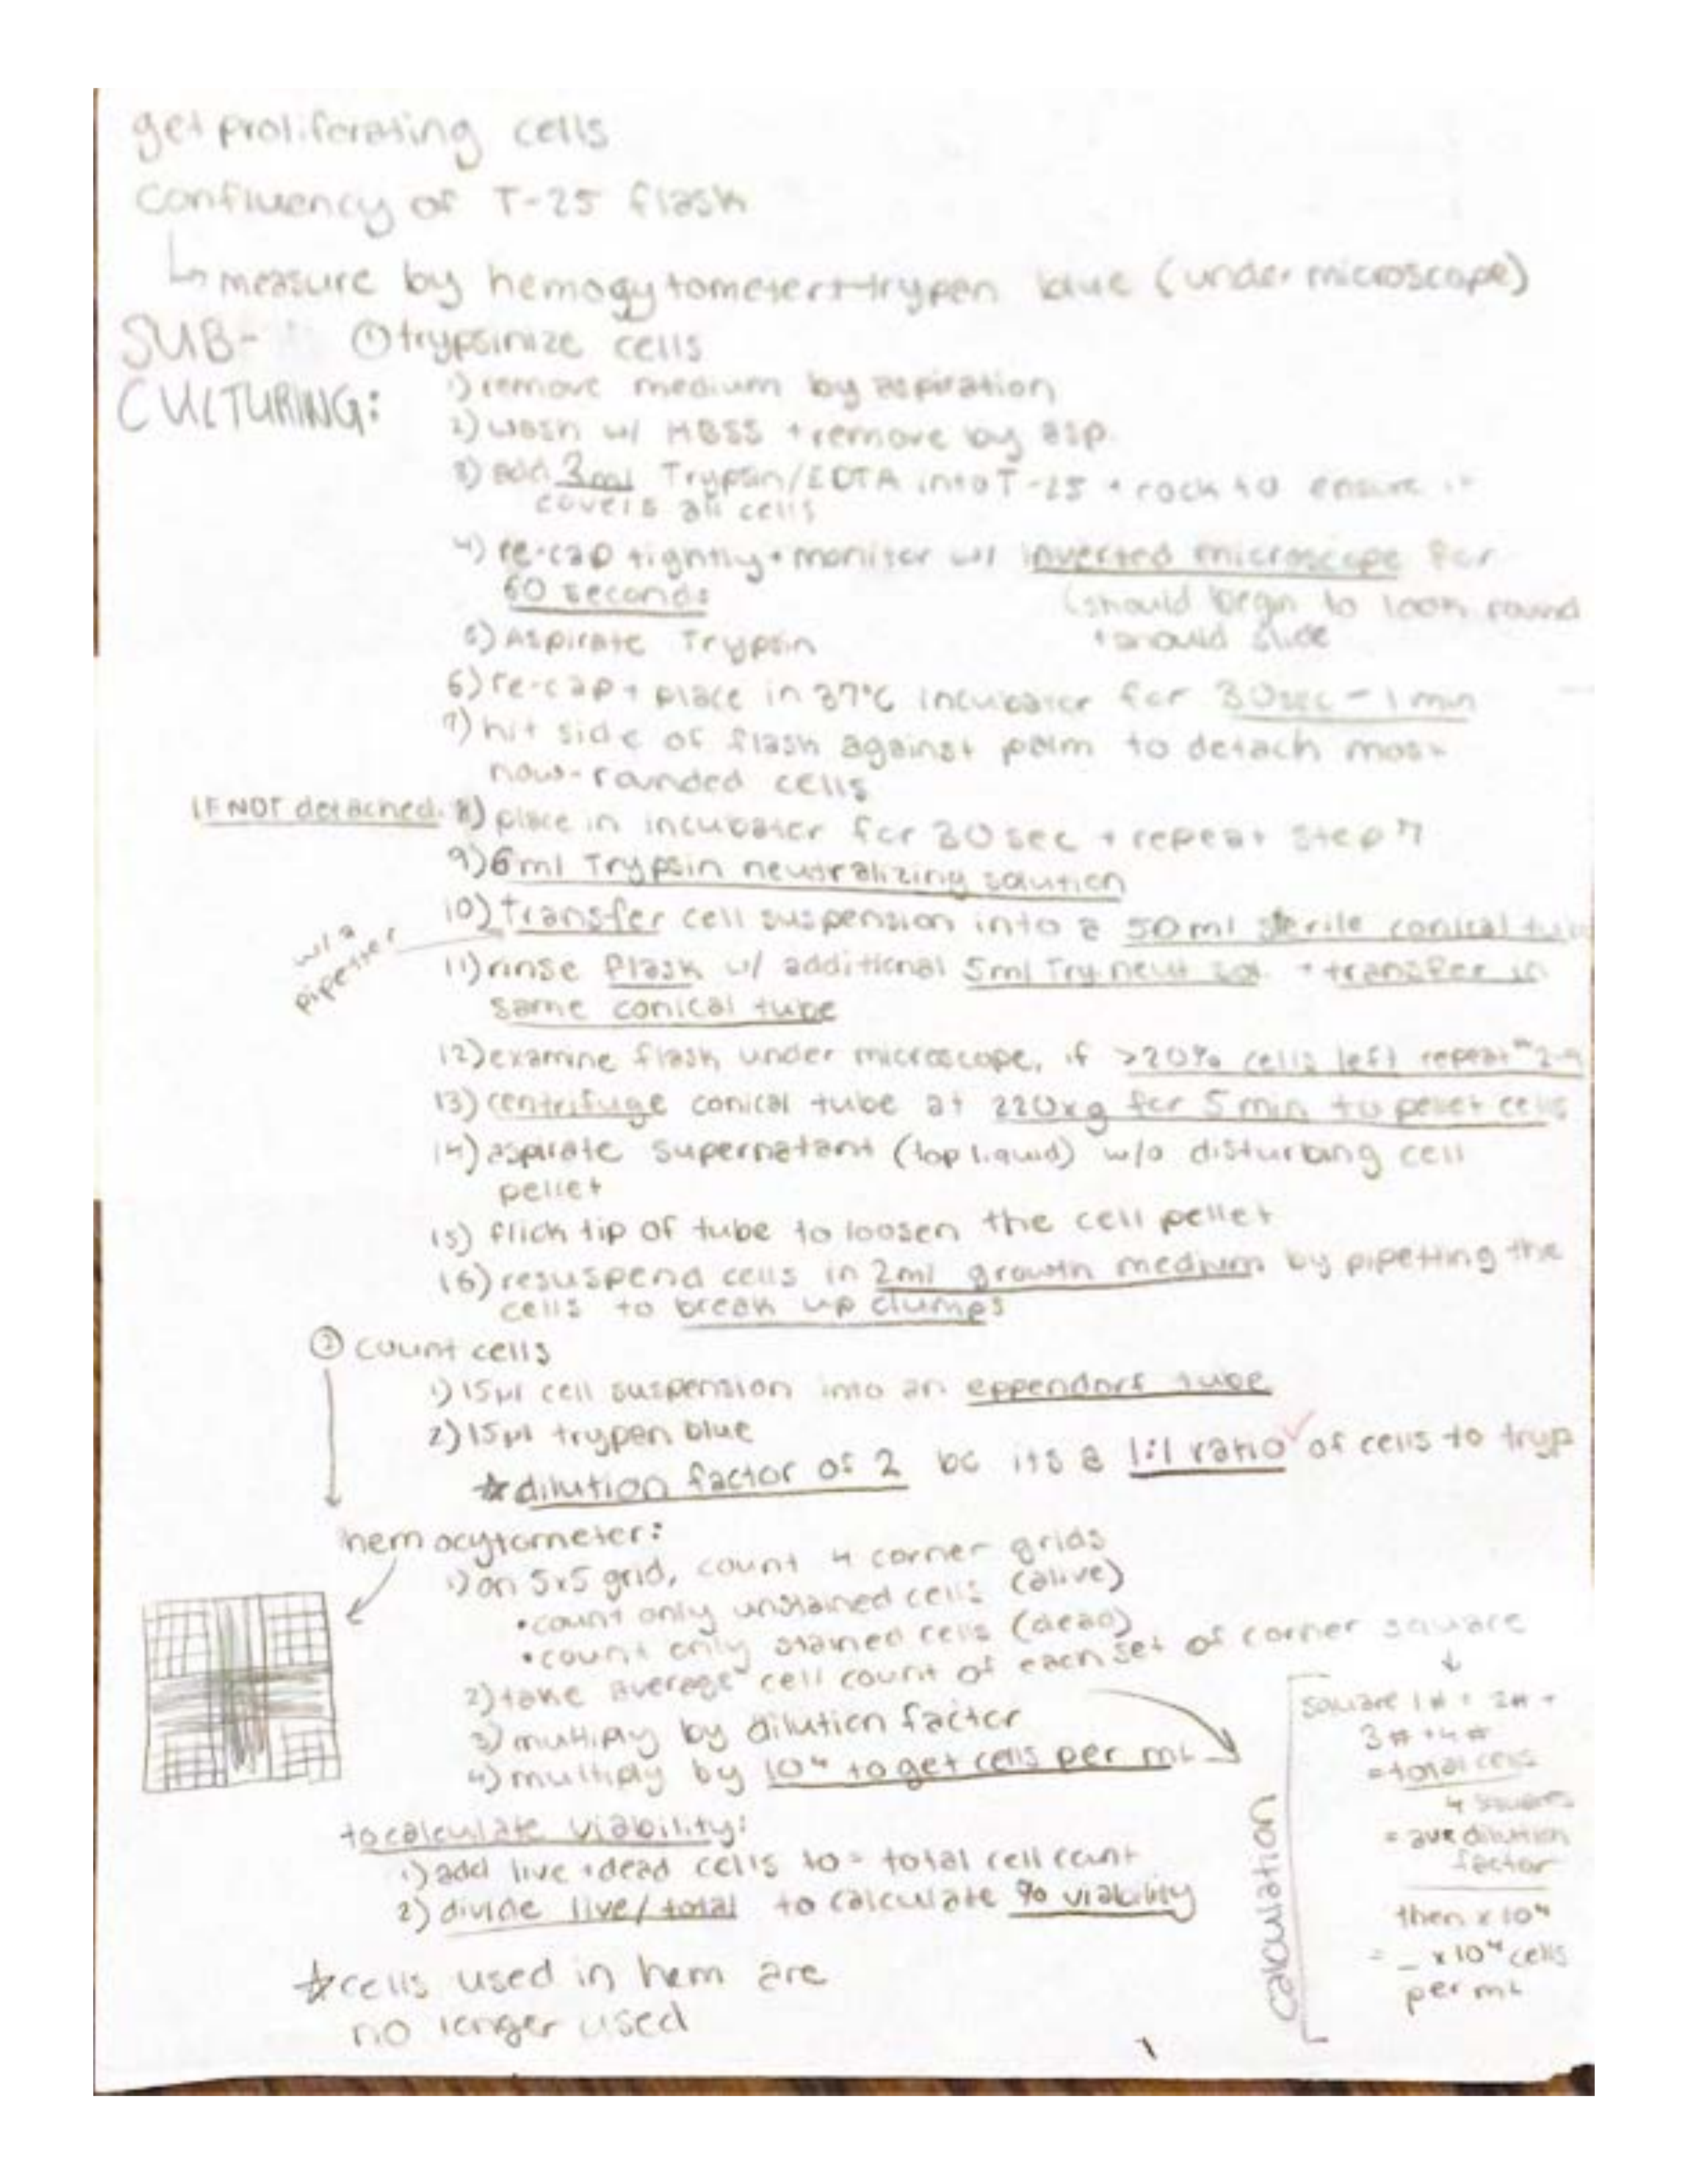 get proliferating cells
Confluency of T-25 flask
↳ measure by hemogytometer + trypen blue (under microscope)
SUB-
CULTURING:
① trypsinize cells
1) remove medium by aspiration
2) wash w/ HBSS + remove by asp.
3) add 2ml Trypsin/EDTA into T-25 + rock to ensure it
covers all cells
4) re-cap tightly + monitor w/ inverted microscope for
60 seconds
(should begin to look round
+ should slide
5) Aspirate Trypsin
6) re-cap + place in 37°C incubator for 30sec - 1 min
7) hit side of flask against palm to detach most
now-rounded cells
IF NOT detached: 8) place in incubator for 30 sec + repeat step 7
9) 6ml Trypsin neutralizing solution
10) transfer cell suspension into a 50ml sterile conical tube
w/ a
pipetter
11) rinse flask w/ additional 5ml Try neut sol. + transfer in
same conical tube
12) examine flask under microscope, if >20% cells left repeat #2-9
13) centrifuge conical tube at 220xg for 5 min to pellet cells
14) aspirate supernatant (top liquid) w/o disturbing cell
pellet
15) flick tip of tube to loosen the cell pellet
16) resuspend cells in 2ml growth medium by pipetting the
cells to break up clumps
② count cells
1) 15µl cell suspension into an eppendorf tube
2) 15µl trypen blue
☆ dilution factor of 2 bc its a 1:1 ratio of cells to tryp
hemocytometer:
1) on 5x5 grid, count 4 corner grids
• count only unstained cells (alive)
• count only stained cells (dead)
2) take average cell count of each set of corner square
3) multiply by dilution factor
4) multiply by 10⁴ to get cells per mL
calculation
square 1# + 2# +
3# + 4#
= total cells
4 squares
= ave dilution
factor
then x 10⁴
= _ x 10⁴ cells
per mL
to calculate viability:
1) add live + dead cells to = total cell count
2) divide live/total to calculate % viability
☆ cells used in hem are
no longer used